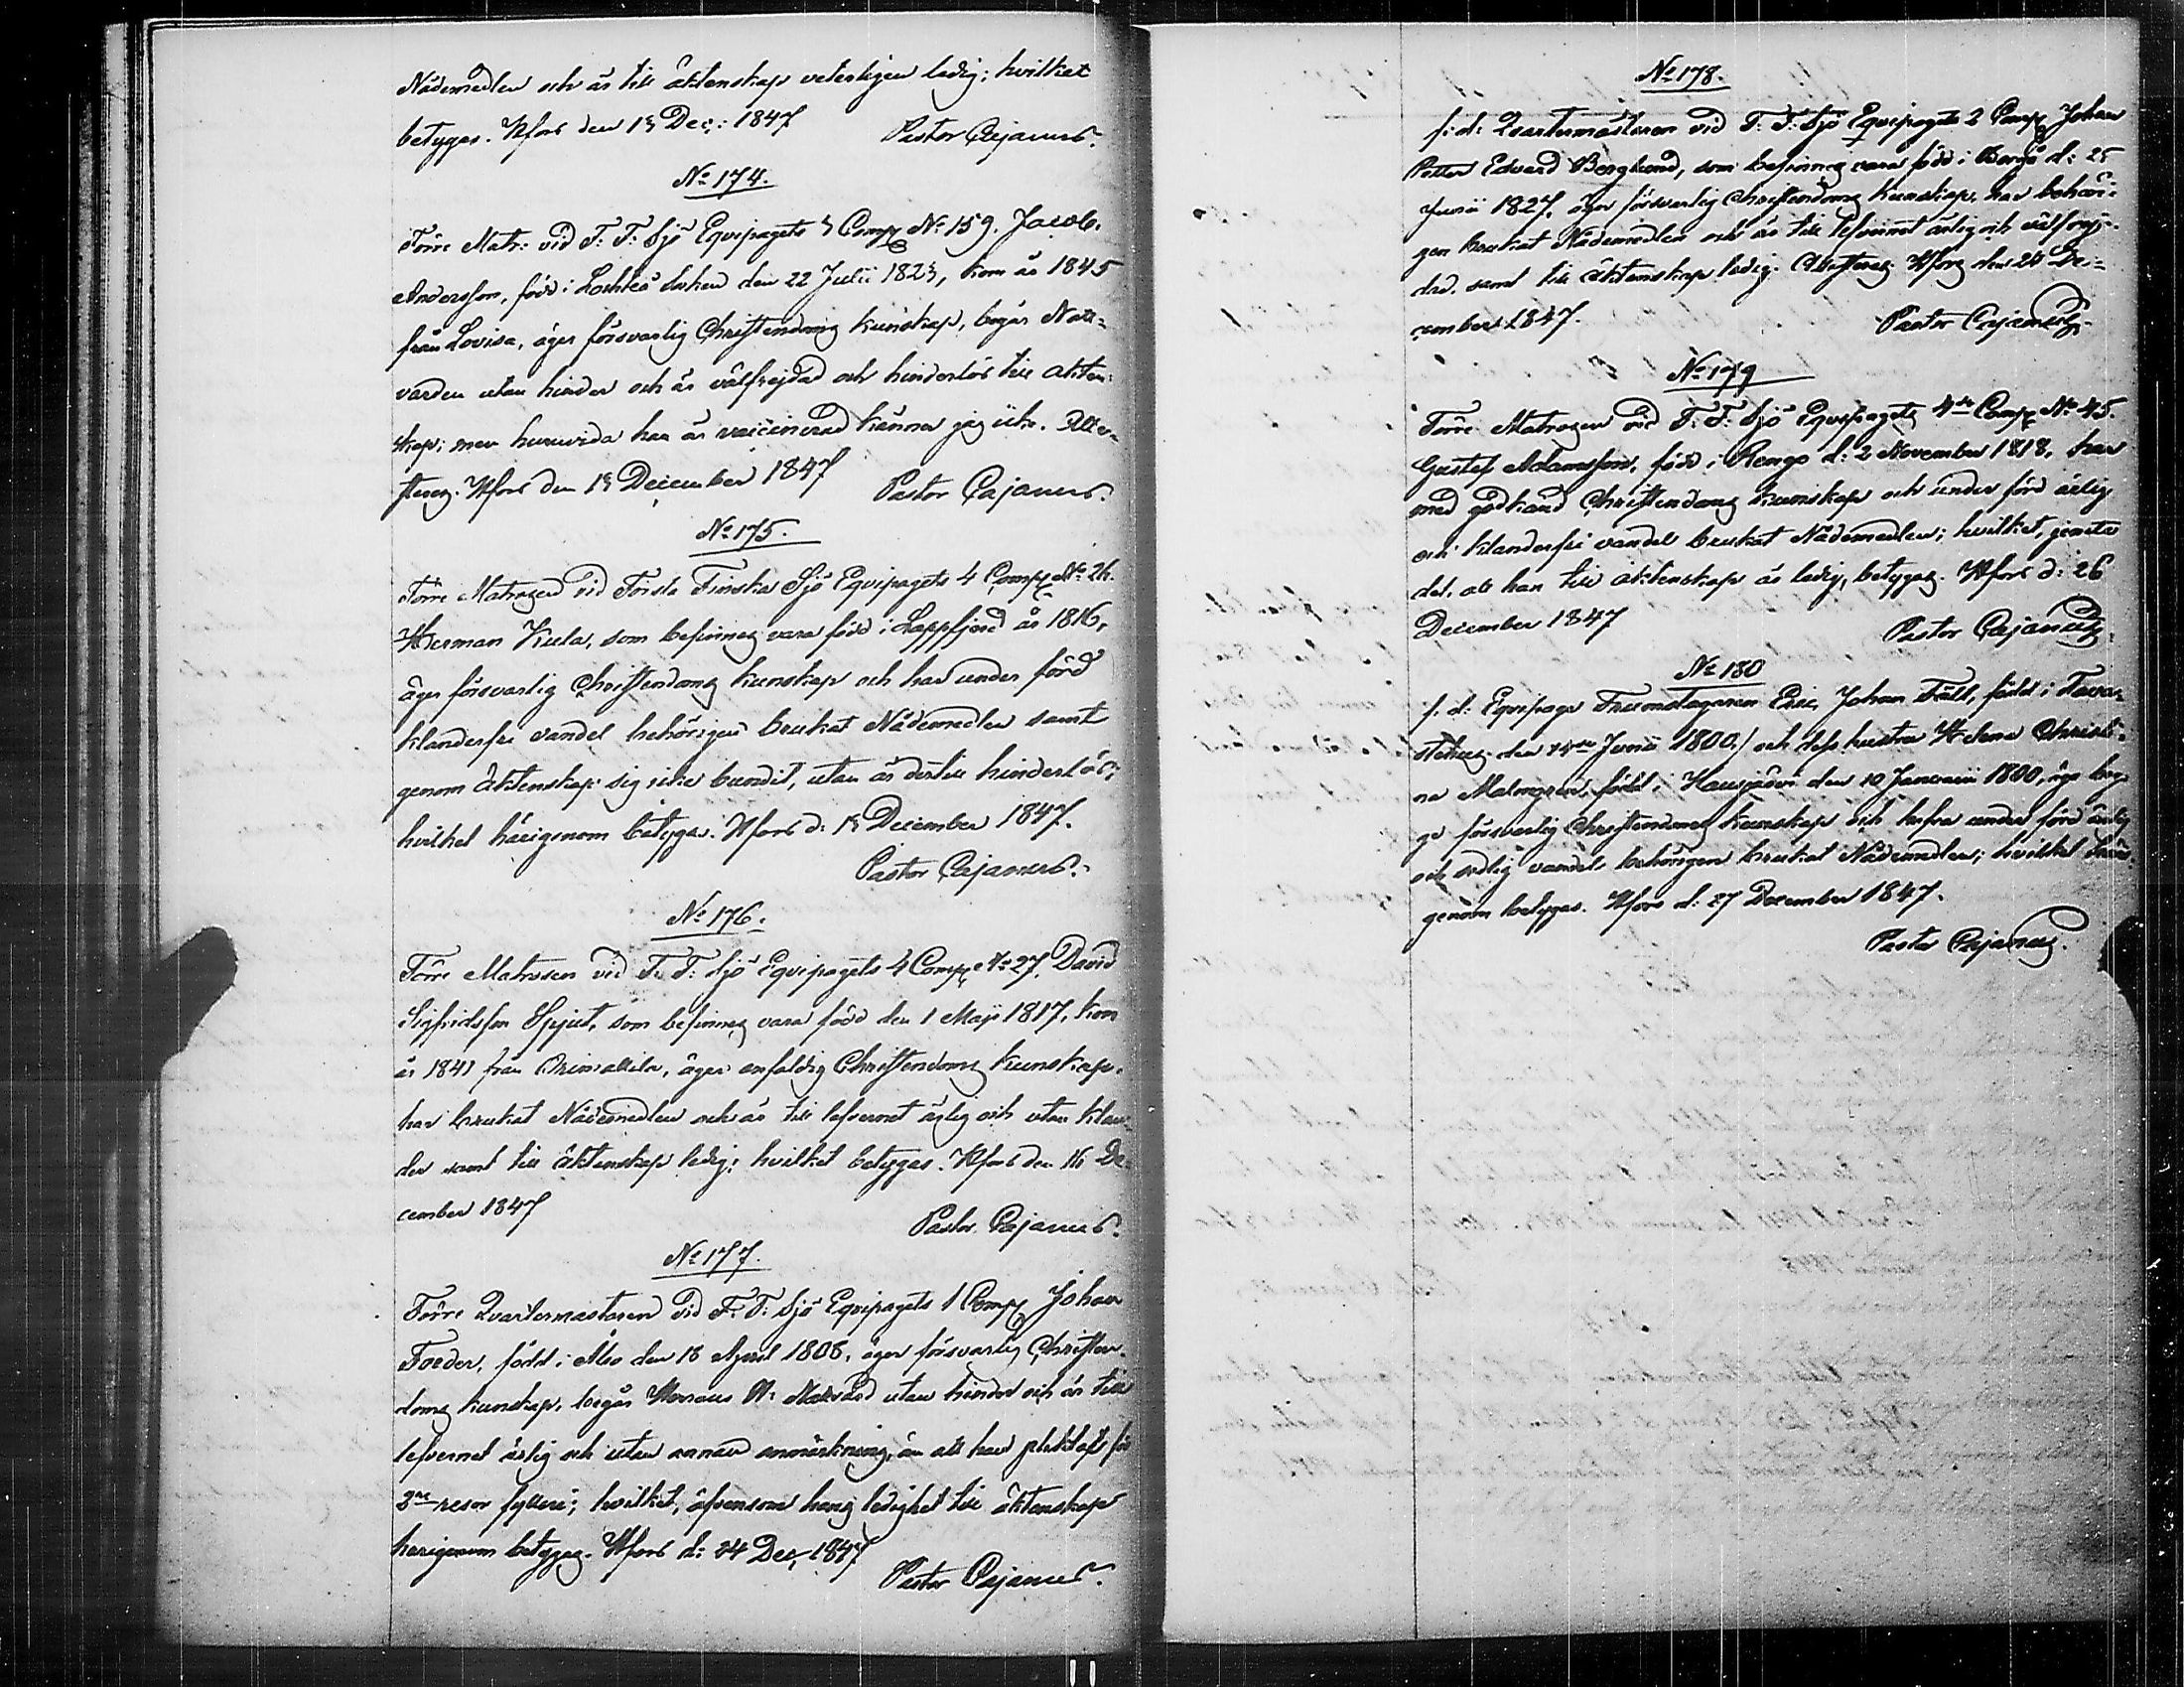 Nådemedlen och är till äktenskap veterligen ledig; hvilket
betygas. Hfors den 13 Dec: 1847
Pastor Cajanus.
No 174.
Förre Matr: vid F: F: Sjö Equipagets 3 Comp No 159. Jacob
Andersson, född i Lochteå socken den 22 Julii 1823, kom år 1845
från Lovisa, äger försvarlig Christendoms kunskap, begår Natt-
varden utan hinder och är välfrejdad och hinderlös till äkten-
skap; men huruvida han är vaccinerad känner jag icke. Atte-
steras. Hfors den 13 December 1847
Pastor Cajanus.
No 175.
Förre Matrosen vid Första Finska Sjö Equipagets 4 Comp No 26.
Herman Kula, som befinnes vara född i Lappfjerd år 1816,
äger försvarlig Christendoms kunskap och har under förd
klanderfri vandel behörigen brukat Nådemedlen samt
genom äktenskap sig icke bundit, utan är dertill hinderlös;
hvilket härigenom betygas. Hfors d: 13 December 1847.
Pastor Cajanus.
No 176.
Förre Matrosen vid F: F: Sjö Equipagets 4 Comp No 27. David
Sigfridsson Spjut, som befinnes vara född den 1 Maji 1817, kom
år 1841 från Orimattila, äger enfaldig Christendoms kunskap,
har brukat Nådemedlen och är till lefvernet ärlig och utan klan-
der samt till äktenskap ledig; hvilket betygas. Hfors den 16 De-
cember 1847
Pastor Cajanus.
No 177.
Förre Quartermästaren vid F: F: Sjö Equipagets 1 Comp Johan
Foeder, född i Åbo den 18 April 1808, äger försvarlig Christen-
doms kunskap, begår Herrans H: Nattvard utan hinder och är till
lefvernet ärlig och utan annan anmärkning, än att han pliktat för
2ne resor fylleri; hvilket, äfvensom hans ledighet till äktenskap
härigenom betygas. Hfors d: 24 Dec, 1847
Pastor Cajanus.
No 178.
f: d: Quartermästaren vid F: F: Sjö Equipagets 2 Comp Johan
Petter Edvard Berglund, som befinnes vara född i Borgå d: 25
Junii 1827, äger försvarlig Christendoms kunskap, har behöri-
gen brukat Nådemedlen och är till lefvernet ärlig och välfrej-
dad, samt till äktenskap ledig. Attesteras Hfors den 24 De-
cember 1847.
Pastor Cajanus.
No 179
Förre Matrosen vid F: F: Sjö Equipagets 4de Comp No 45.
Gustaf Adamsson, född i Rengo d: 2 November 1818, har
med godkänd Christendoms kunskap och under förd ärlig
och klanderfri vandel brukat Nådemedlen; hvilket, jemte
det, att han till äktenskap är ledig, betygas. Hfors d: 26
December 1847
Pastor Cajanus.
No 180
f. d: Equipage Trumslagaren Eric Johan Fält, född i Tava-
stehus den 14de Junii 1800, och dess hustru Helena Christi-
na Malmgren, född i Hausjärvi den 10 Januarii 1800, äga beg-
ge försvarlig Christendoms kunskap och hafva under förd ärlig
och sedlig vandel behörigen brukat Nådemedlen; hvilket här-
genom betygas. Hfors d: 27 December 1847.
Pastor Cajanus.